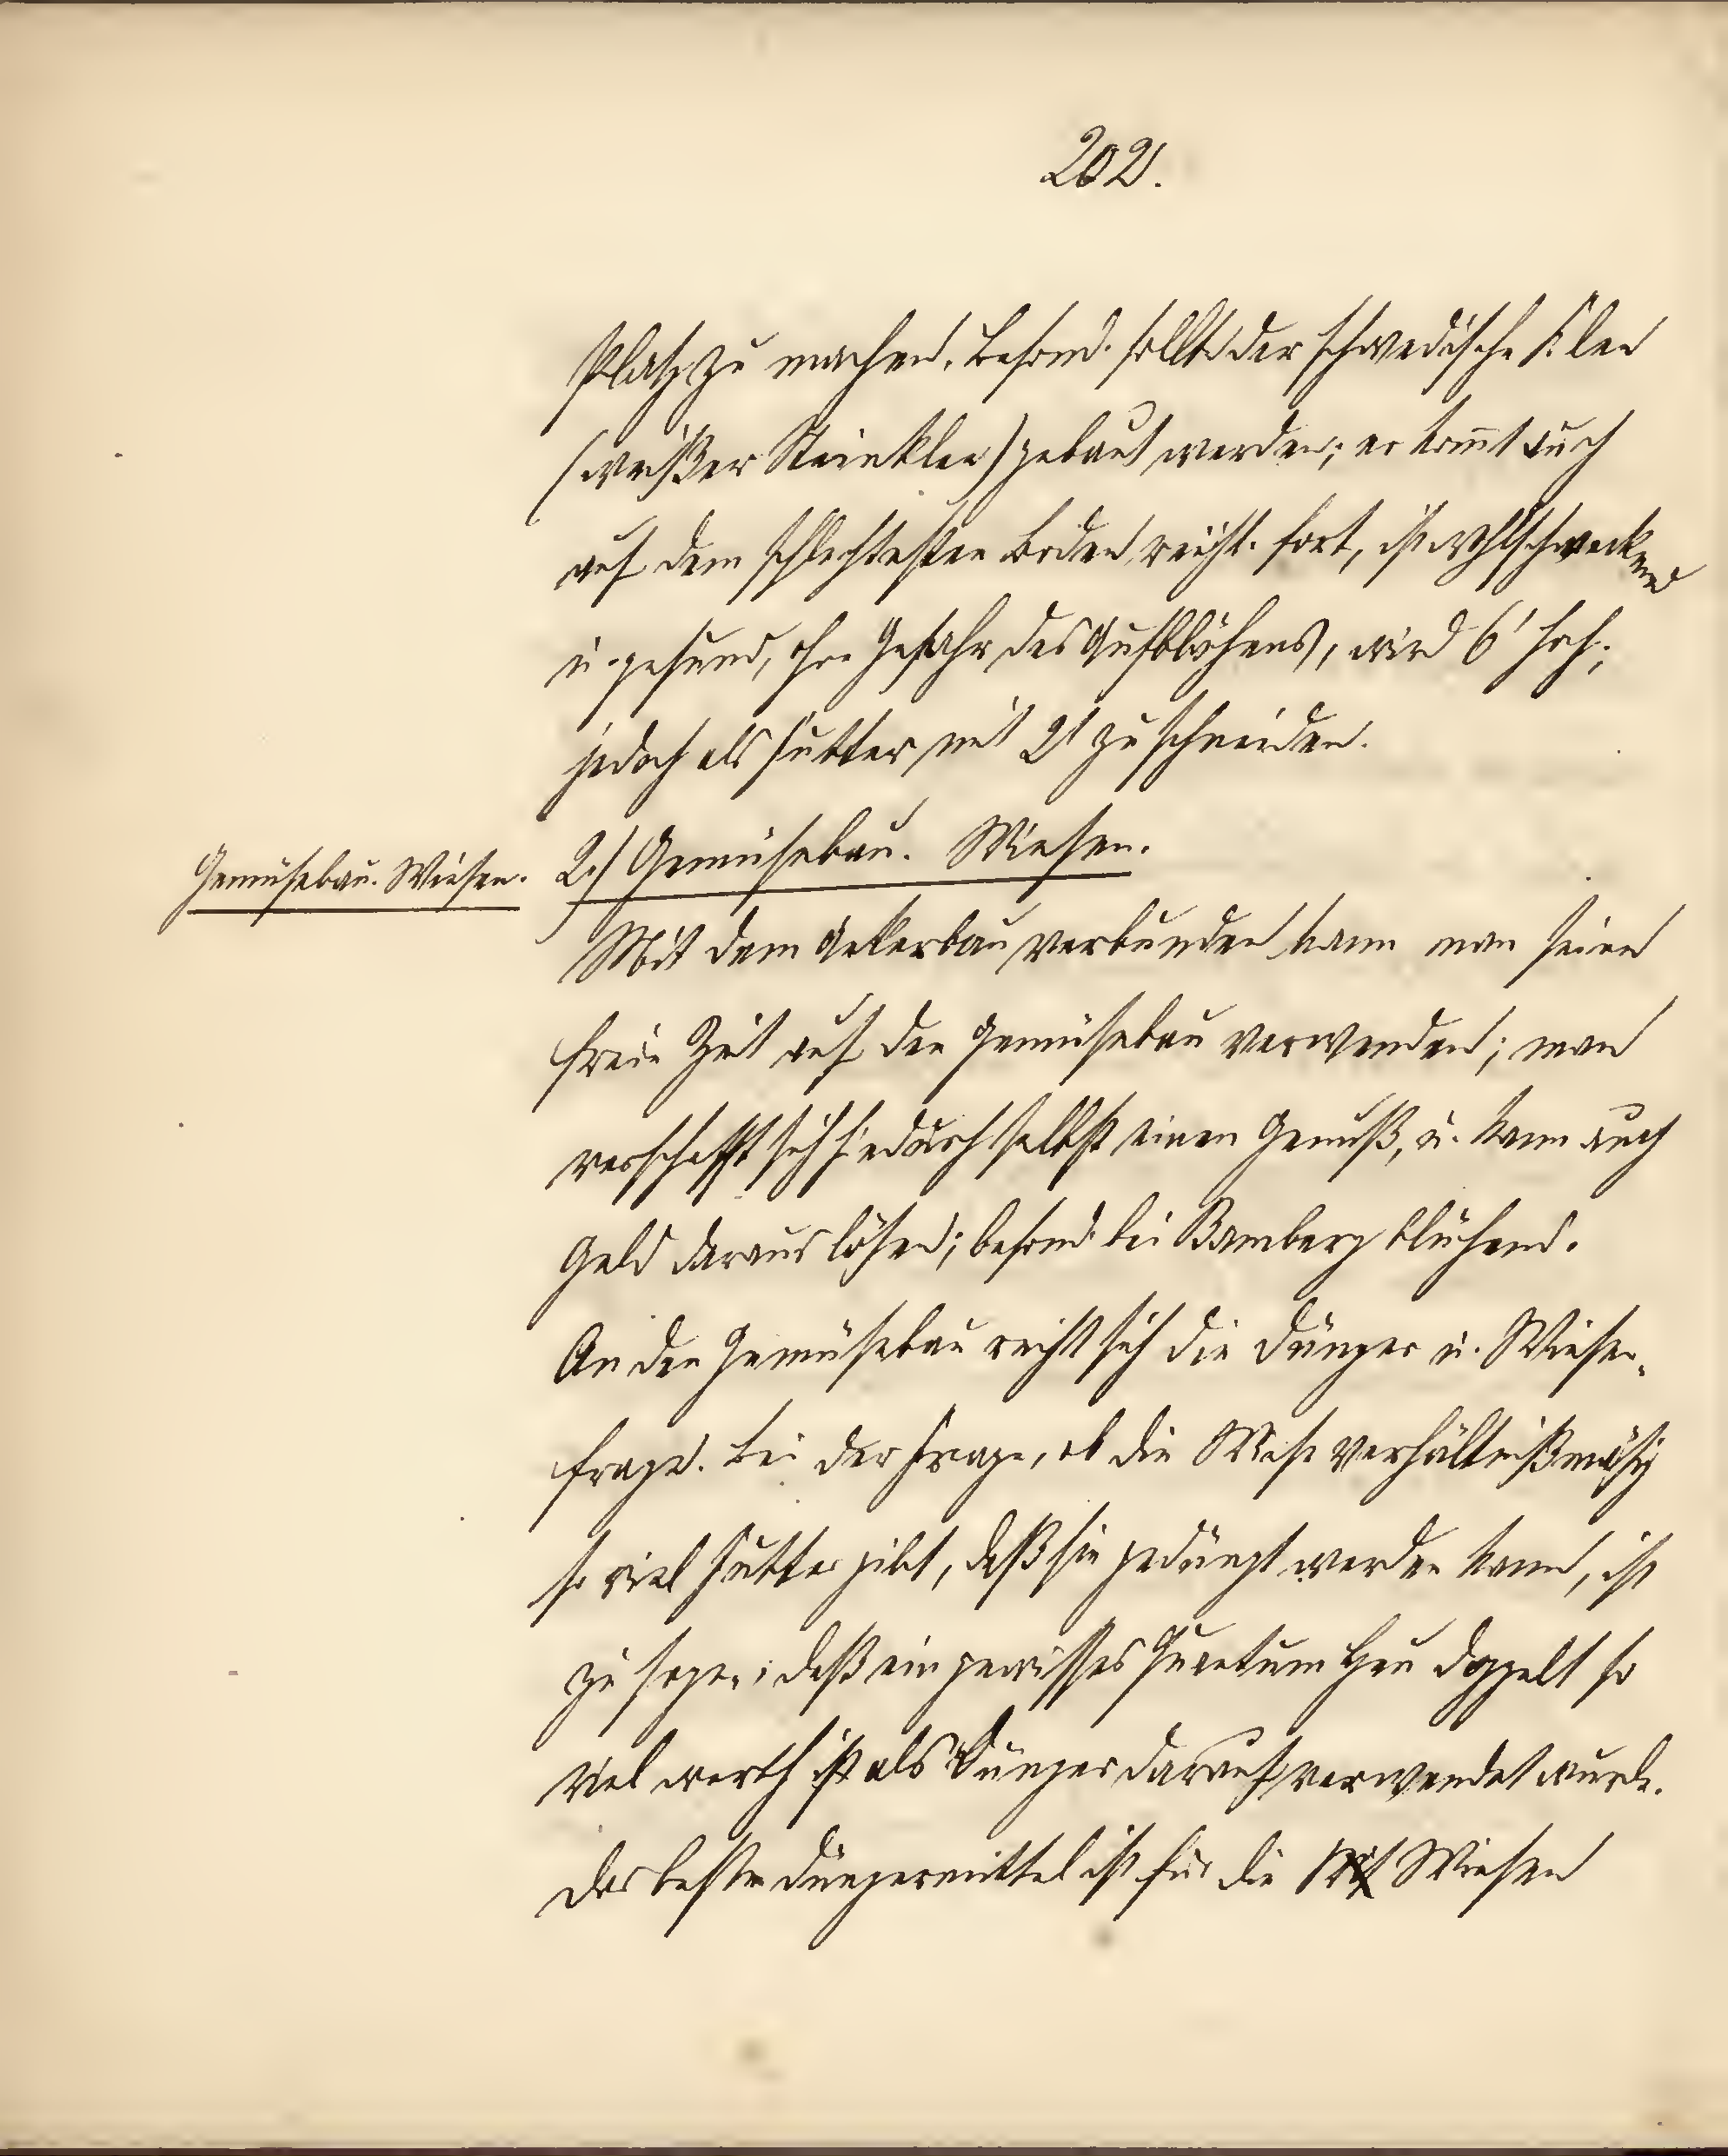 202.
Platz zu machen. Besond. sollte der schwedische Klee
(weißer Steinklee) gebaut werden; er kom̅t auch
auf dem schlechtesten Boden leicht fort, ist wohlschmeckend
u. gesund, ohne Gefahr des Aufblähens, wird 6' hoch;
jedoch als Futter mit 2' zu schneiden.
Gemüsebau. Wiesen.
2.) Gemüsebau. Wiesen.
Mit dem Ackerbau verbunden kann man seine
freie Zeit auf den Gemüsebau verwenden; man
verschafft sich hiedurch selbst einen Genuß, u. kann auch
Geld daraus lösen; besond. bei Bamberg blühend.
An den Gemüsebau reiht sich die Dünger u. Wiesen-
frage. Bei der Frage, ob die Wiese verhältnißmäsig
so viel Futter gibt, daß sie gedüngt werden kann, ist
zu sagen: daß ein gewisses Quantum Heu doppelt so
viel werth ist als Dünger darauf verwendet wurde.
Das beste Düngermittel ist für die Wiesen